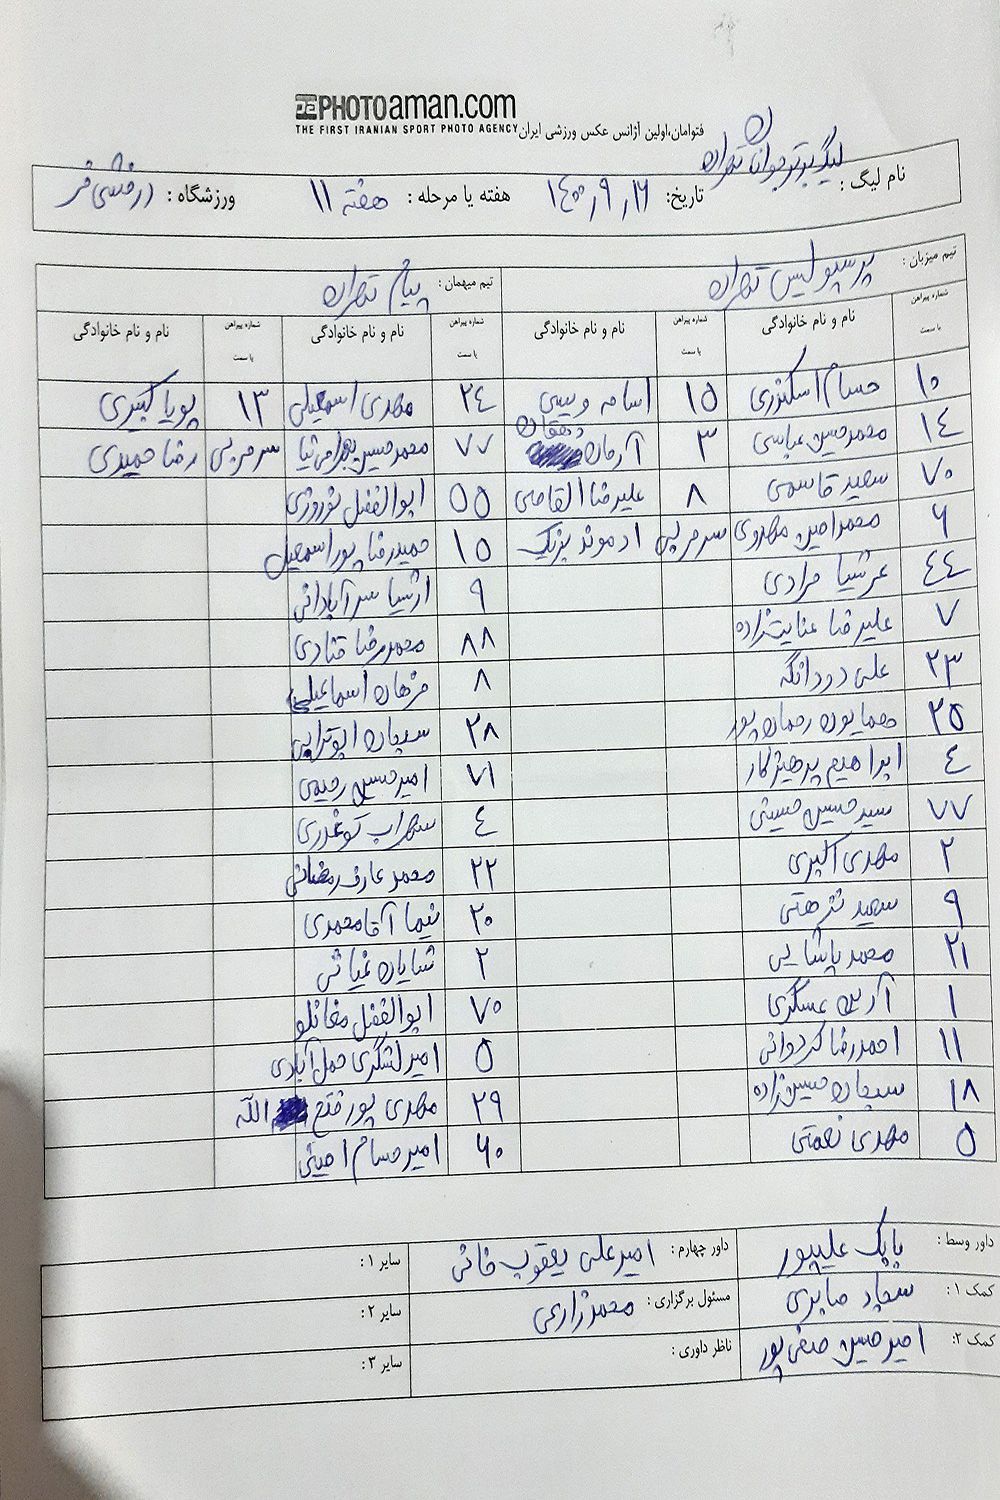 PHOTOaman.com
THE FIRST IRANIAN SPORT PHOTO AGENCY
فتوامان،اولین آژانس عکس ورزشی ایران
نام لیگ : لیگ برتر جوانان تهران
تاریخ: ۱۴۰۰,۹,۱۶ هفته یا مرحله : هفته ۱۱ ورزشگاه : درفشی فر
تیم میزبان : پرسپولیس تهران تیم میهمان : پیام تهران
شماره پیراهن یا سمت نام و نام خانوادگی شماره پیراهن یا سمت نام و نام خانوادگی شماره پیراهن یا سمت نام و نام خانوادگی شماره پیراهن یا سمت نام و نام خانوادگی
۱۰ حسام اسکندری ۱۵ اسامه ویسی ۲۴ مهدی اسمعیلی ۱۳ پویا کبیری
۱۴ محمدحسین عباسی ۳ آرمان دهقان ۷۷ محمدحسین بهرامی نیا سرمربی رضا حمیدی
۷۰ سعید قاسمی ۸ علیرضا القاصی ۵۵ ابوالفضل نوروزی
۶ محمدامین مهدوی سرمربی ادموند بزیک ۱۵ حمیدرضا پوراسمعیل
۴۴ عرشیا مرادی ۹ ارشیا سرآبادانی
۷ علیرضا عنایت زاده ۸۸ محمدرضا قنادی
۲۳ علی دودانگه ۸ فرهان اسماعیلی
۲۵ همایون رحمان پور ۲۸ سبحان ابوترابی
۴ ابراهیم پرهیزکار ۷۱ امیرحسین رحیمی
۷۷ سیدحسین حسینی ۴ سهراب
۲ مهدی اکبری ۲۲ محمد عارف رمضانی
۹ سعید نزهتی ۲۰ نیما آقامحمدی
۲۱ محمد پاشایی ۲ شایان غیاثی
۱ آرین عسگری ۷۰ ابوالفضل مغانلو
۱۱ احمدرضا کردوانی ۵ امیر لشگری حمل آبادی
۱۸ سبحان حسین زاده ۲۹ مهدی پور فتح الله
۵ مهدی نعمتی ۶۰ امیرحسام امینی
داور وسط : بابک علیپور داور چهارم : امیرعلی یعقوب خانی سایر ۱ :
کمک ۱ : سجاد صابری مسئول برگزاری : محمد زارعی سایر ۲ :
کمک ۲: امیرحسین صفی پور ناظر داوری : سایر ۳ :